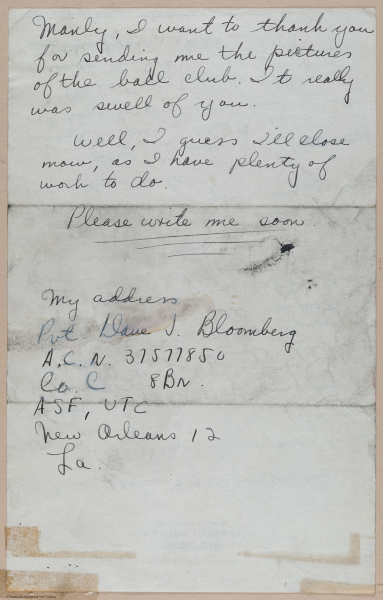 Manly, I want to thank you
for sending me the pictures
of the ball club. It really
was swell of you.
Well, I guess I'll close
now, as I have plenty of
work to do.
Please write me soon.
My address
Pvt. Dave J. Bloomberg
A.C.N. 37577850
Co. C 8Bn.
ASF, UTC
New Orleans 12
La.